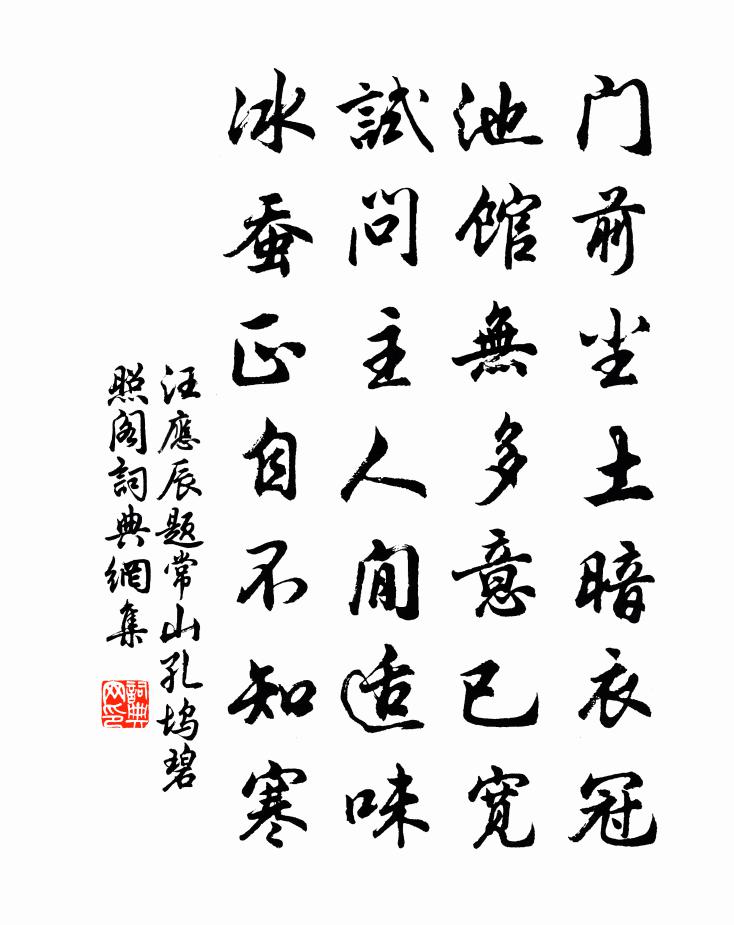 门前尘土暗衣冠
池馆無多意已宽
試问主人閒适味
冰蚕正自不知寒
汪應辰题常山孔坞碧
照阁詞典網集
詞典
网印